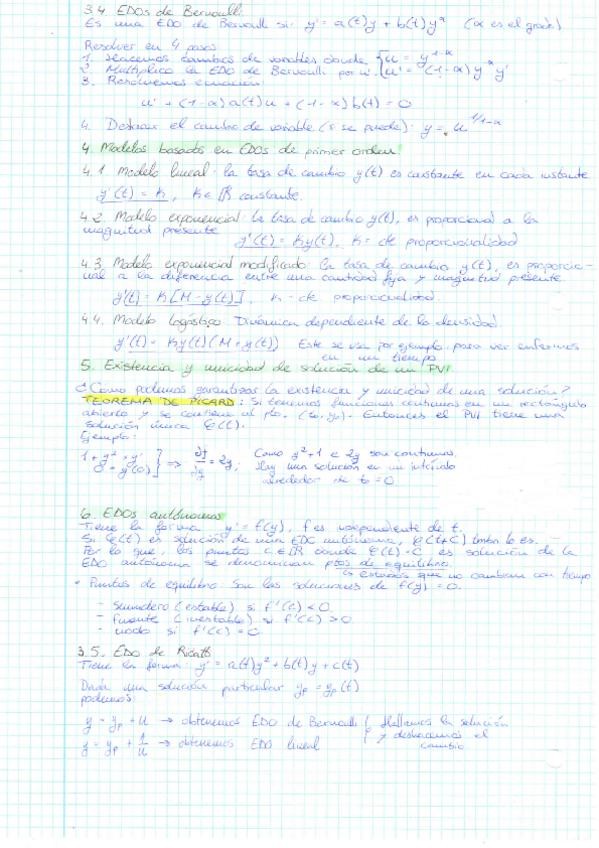 3.4. EDOs de Bernoulli
Es una EDO de Bernoulli si: y' = a(t)y + b(t)y^α (α es el grado)
Resolver en 4 pasos
1. Hacemos cambios de variables donde { u = y^1-α
2. Multiplico la EDO de Bernoulli por u'. { u' = (1-α) y^-α y'
3. Resolvemos ecuación:
u' + (1-α) a(t) u + (1-α) b(t) = 0
4. Deshacer el cambio de variable (si se puede): y = u^1/1-α
4. Modelos basados en EDOs de primer orden
4.1 Modelo lineal: la tasa de cambio y(t) es constante en cada instante
y'(t) = K, K ∈ ℝ constante.
4.2. Modelo exponencial: la tasa de cambio y(t), es proporcional a la
magnitud presente
y'(t) = Ky(t), K = cte proporcionalidad
4.3. Modelo exponencial modificado: la tasa de cambio y(t), es proporcio-
nal a la diferencia entre una cantidad fija y magnitud presente.
y'(t) = K[M - y(t)], K - cte proporcionalidad.
4.4. Modelo logístico: Dinámica dependiente de la densidad
y'(t) = Ky(t)(M - y(t)) Este se usa por ejemplo para ver enfermos
en un tiempo
5. Existencia y unicidad de solución de un PVI
¿Cómo podemos garantizar la existencia y unicidad de una solución?
TEOREMA DE PICARD: Si tenemos funciones continuas en un rectángulo
abierto y se contiene al pto. (t₀, y₀). Entonces el PVI tiene una
solución única φ(t).
Ejemplo:
1 + y² = y' } => ∂f/∂y = 2y; Como y²+1 e 2y son continuas,
0 = y(0) Hay una solución en un intervalo
alrededor de t₀ = 0
6. EDOs autónomas
Tiene la forma y' = f(y), f es independiente de t.
Si φ(t) es solución de una EDO autónoma, φ(t+C) tmbn lo es.
Por lo que, los puntos c ∈ ℝ donde φ(t) = C es solución de la
EDO autónoma se denominan ptos de equilibrio.
↳ estados que no cambian con tiempo
• Puntos de equilibrio son las soluciones de f(y) = 0.
- Sumidero (estable) si f'(c) < 0
- fuente (inestable) si f'(c) > 0
- nodo si f'(c) = 0
3.5. EDO de Ricatti
Tiene la forma y' = a(t)y² + b(t)y + c(t)
Dada una solución particular yp = yp(t)
podemos:
y = yp + u → obtenemos EDO de Bernoulli { Hallamos la solución
y = yp + 1/u → obtenemos EDO lineal { y deshacemos el
cambio